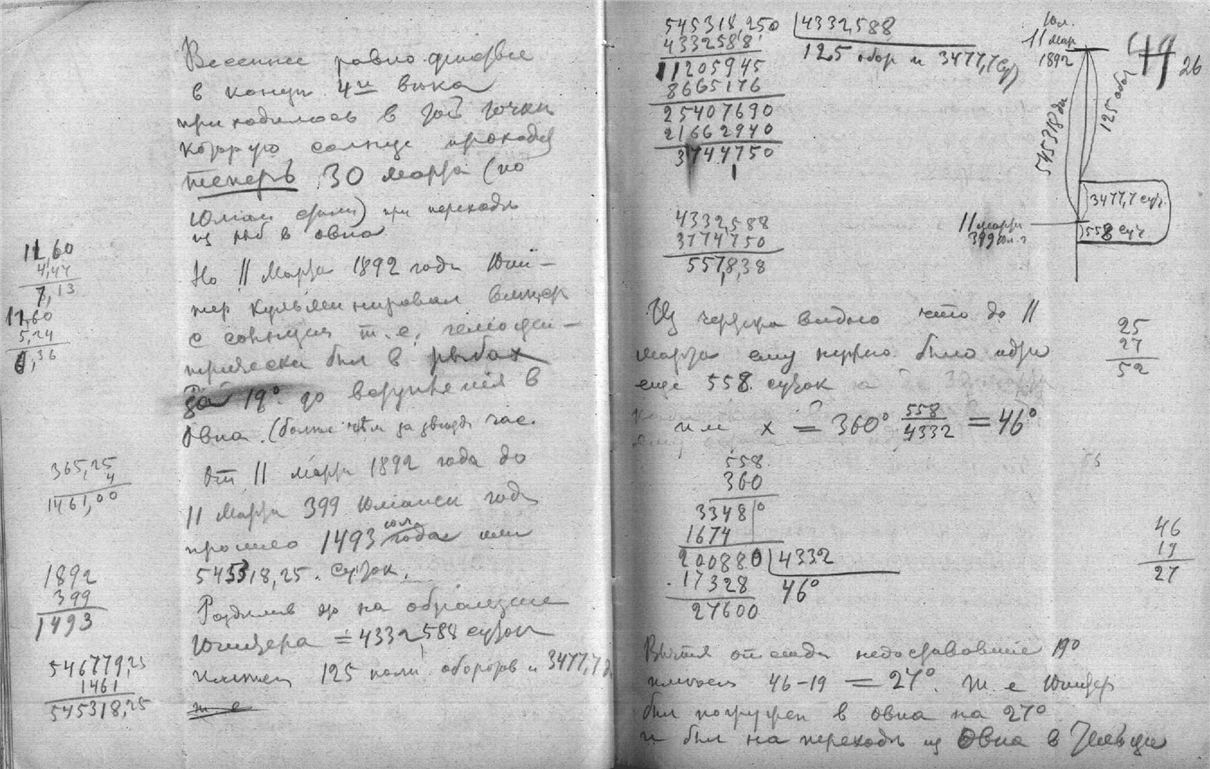 Весеннее равноденствие
в конце 4го века
приходилось в той точке
которую солнце проходит
теперь 30 марта (по
Юлиан стилю) при переходе
из рыб в овна
Но 11 Марта 1892 года Юпи-
тер кульминировал вместе
с солнцем т.е. гелиоцен-
трически был в рыбах
за 19° до вступления в
Овна. (более чем за час.
От 11 марта 1892 года до
11 Марта 399 Юлианск года
прошло 1493 юл. года или
545318,25. суток.
Разделив это на обращение
Юпитера = 4332,588 суток
имеем 125 полн. оборотов и 3477,7
т е
11,60
4,47
7,13
11,60
5,24
6,36
365,25
4
1461,00
1892
399
1493
546779,25
1461
545318,25
545318,250 4332,588
4332588 125 обор и 3477,7 сут
11205945
8665176
25407690
21662940
3744750
4332,588
3774750
557,8,38
Юл.
11 мар
1892
49
26
545318 дн
125 обор
3477,7 сут.
558 сут
11 марта
399 юл. г
Из чертежа видно что до 11
марта ему нужно было идти
еще 558 суток
или x = 360° 558/4332 = 46°
558
360
33480
1674
200880 4332
17328 46°
27600
25
27
52
46
19
27
Вычтя отсюда недостававшие 19°
имеем 46-19 = 27°. т. е Юпитер
был погружен в овна на 27°
и был на переходе из Овна в Тельца